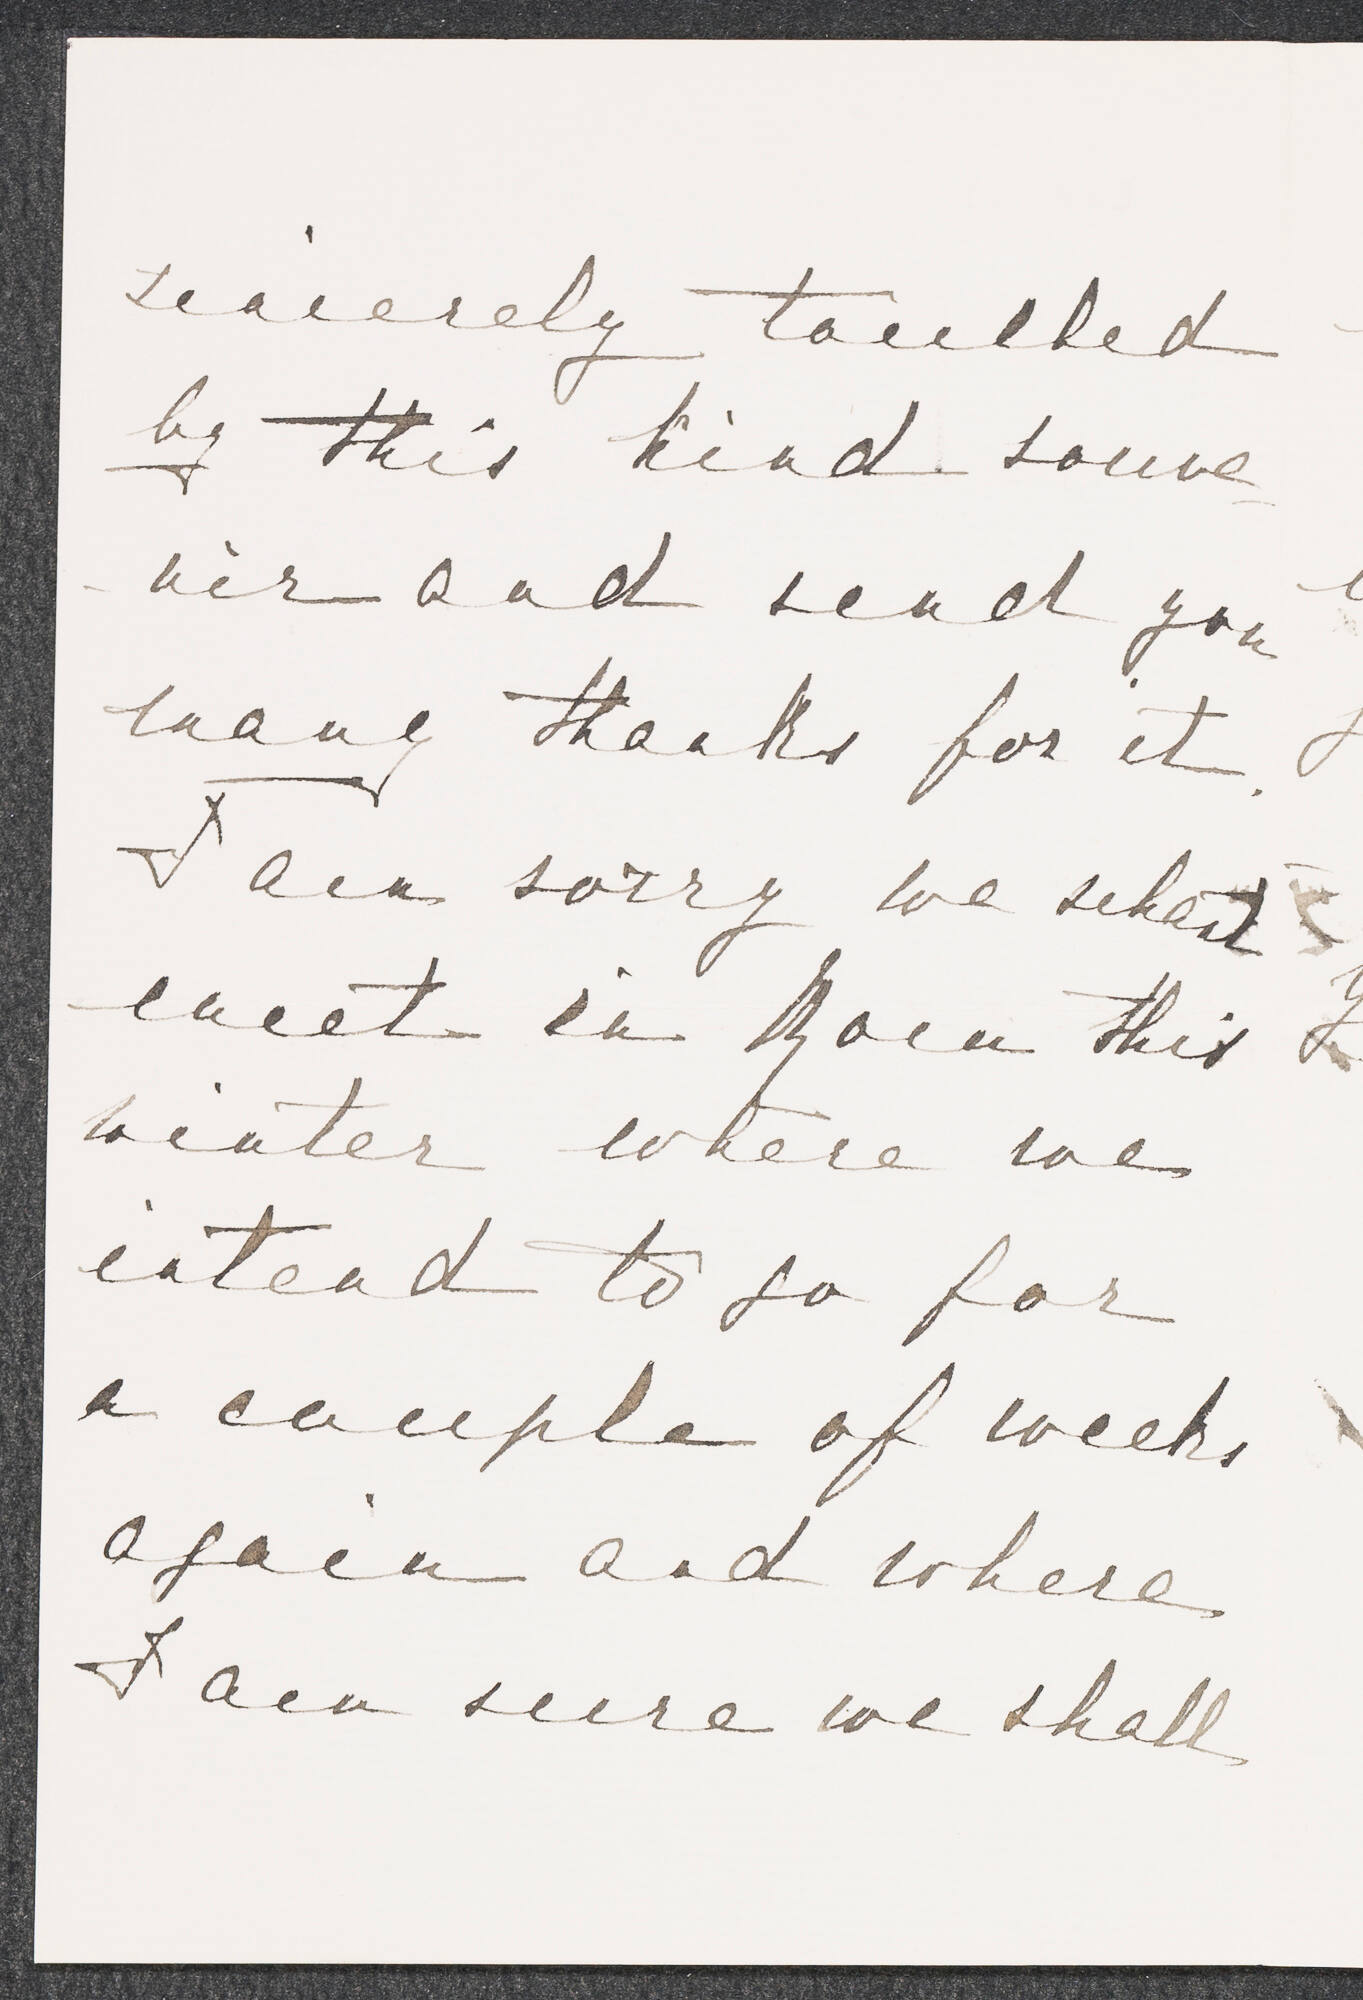 sincerely touched
by this kind souve
-nir and send you
many thanks for it.
I am sorry we
meet in Rom this
winter where we
intend to go for
a couple of weeks
again and where
I am sure we shall